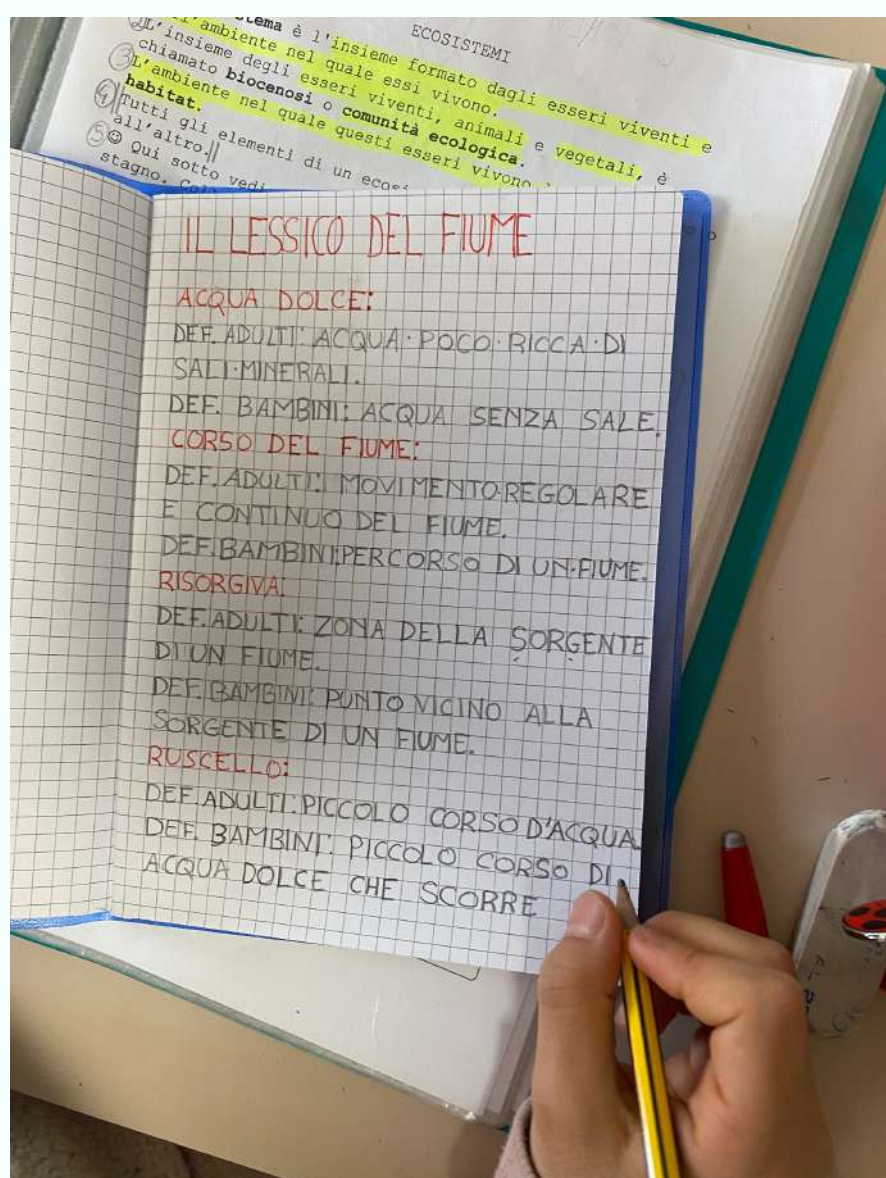 ECOSISTEMI
è l'insieme formato dagli esseri viventi e
l'ambiente nel quale essi vivono.
② L'insieme degli esseri viventi, animali e vegetali, è
chiamato biocenosi o comunità ecologica.
③ L'ambiente nel quale questi esseri vivono
habitat.
④ Tutti gli elementi di un
all'altro.
⑤ ☺ Qui sotto vedi
stagno.
IL LESSICO DEL FIUME
ACQUA DOLCE:
DEF. ADULTI: ACQUA·POCO·RICCA·DI
SALI·MINERALI.
DEF. BAMBINI: ACQUA SENZA SALE.
CORSO DEL FIUME:
DEF. ADULTI: MOVIMENTO·REGOLARE
E CONTINUO DEL FIUME.
DEF. BAMBINI: PERCORSO DI UN·FIUME.
RISORGIVA:
DEF. ADULTI: ZONA DELLA SORGENTE
DI UN FIUME.
DEF. BAMBINI: PUNTO VICINO ALLA
SORGENTE DI UN FIUME.
RUSCELLO:
DEF. ADULTI: PICCOLO CORSO D'ACQUA
DEF. BAMBINI: PICCOLO CORSO DI
ACQUA DOLCE CHE SCORRE